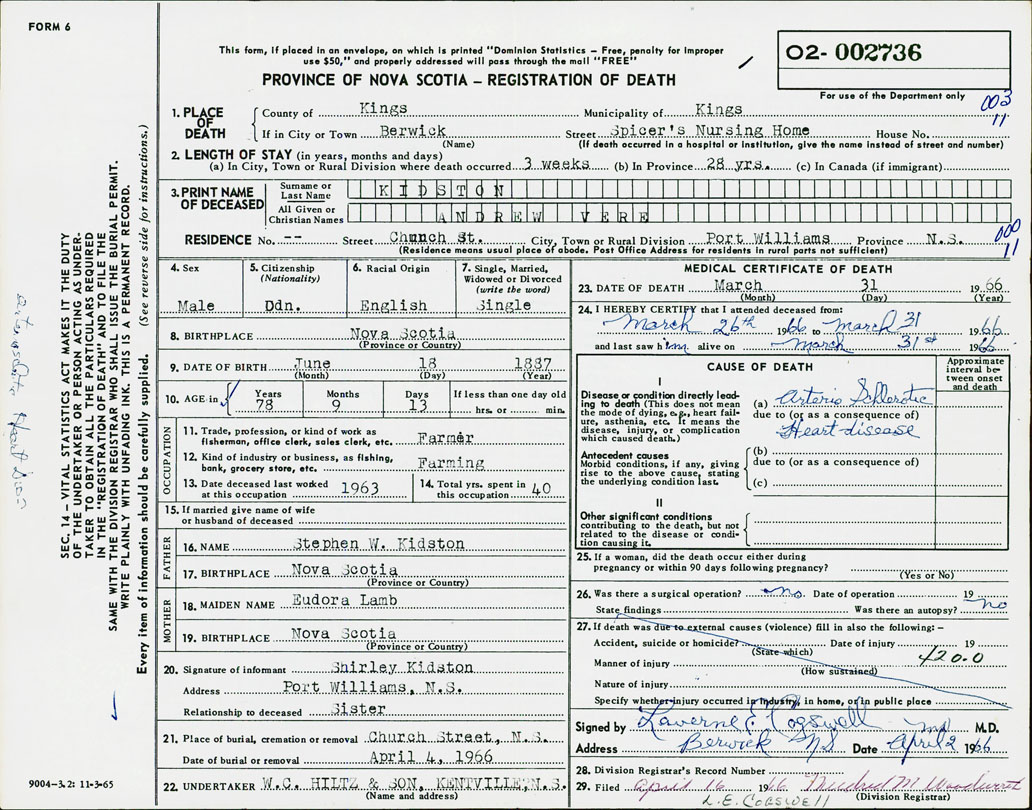 FORM 6
This form, if placed in an envelope, on which is printed "Dominion Statistics – Free, penalty for improper
use $50," and properly addressed will pass through the mail "FREE"
PROVINCE OF NOVA SCOTIA – REGISTRATION OF DEATH
02- 002736
For use of the Department only
003
11
1. PLACE OF DEATH
County of Kings Municipality of Kings
If in City or Town Berwick Street Spicer's Nursing Home House No.
(Name) (If death occurred in a hospital or institution, give the name instead of street and number)
2. LENGTH OF STAY (in years, months and days)
(a) In City, Town or Rural Division where death occurred 3 weeks (b) In Province 28 yrs. (c) In Canada (if immigrant)
3. PRINT NAME OF DECEASED
Surname or Last Name KIDSTON
All Given or Christian Names ANDREW VERE
000
11
RESIDENCE No. -- Street Church St. City, Town or Rural Division Port Williams Province N.S.
(Residence means usual place of abode. Post Office Address for residents in rural parts not sufficient)
4. Sex Male
5. Citizenship (Nationality) Ddn.
6. Racial Origin English
7. Single, Married, Widowed or Divorced (write the word) Single
8. BIRTHPLACE Nova Scotia
(Province or Country)
9. DATE OF BIRTH June 18 1887
(Month) (Day) (Year)
10. AGE in Years 78 Months 9 Days 13 If less than one day old hrs. or min.
OCCUPATION
11. Trade, profession, or kind of work as
fisherman, office clerk, sales clerk, etc. Farmer
12. Kind of industry or business, as fishing,
bank, grocery store, etc. Farming
13. Date deceased last worked
at this occupation 1963
14. Total yrs. spent in
this occupation 40
15. If married give name of wife
or husband of deceased
FATHER
16. NAME Stephen W. Kidston
17. BIRTHPLACE Nova Scotia
(Province or Country)
MOTHER
18. MAIDEN NAME Eudora Lamb
19. BIRTHPLACE Nova Scotia
(Province or Country)
20. Signature of informant Shirley Kidston
Address Port Williams, N.S.
Relationship to deceased Sister
21. Place of burial, cremation or removal Church Street, N.S.
Date of burial or removal April 4, 1966
22. UNDERTAKER W.C. HILTZ & SON, KENTVILLE, N.S.
(Name and address)
MEDICAL CERTIFICATE OF DEATH
23. DATE OF DEATH March 31 1966
(Month) (Day) (Year)
24. I HEREBY CERTIFY that I attended deceased from:
March 26th 1966 to March 31 1966
and last saw him alive on March 31st 1966
CAUSE OF DEATH
Approximate interval between onset and death
I
Disease or condition directly leading to death (This does not mean
the mode of dying, e.g., heart failure, asthenia, etc. It means the
disease, injury, or complication
which caused death.)
(a) Arterio Schlerotic
due to (or as a consequence of)
Heart disease
Antecedent causes
Morbid conditions, if any, giving
rise to the above cause, stating
the underlying condition last.
(b)
due to (or as a consequence of)
(c)
II
Other significant conditions
contributing to the death, but not
related to the disease or condition causing it.
25. If a woman, did the death occur either during
pregnancy or within 90 days following pregnancy?
(Yes or No)
26. Was there a surgical operation? no. Date of operation 19
State findings Was there an autopsy? no
27. If death was due to external causes (violence) fill in also the following: –
Accident, suicide or homicide? Date of injury 19
(State which)
Manner of injury 420.0
(How sustained)
Nature of injury
Specify whether injury occurred in industry, in home, or in public place
Signed by Laverne E. Cogswell md M.D.
Address Berwick NS Date April 2 1966
28. Division Registrar's Record Number
29. Filed April 16 1966 Mildred M Woodworth
(Division Registrar)
L.E. COGSWELL
SEC. 14 – VITAL STATISTICS ACT MAKES IT THE DUTY
OF THE UNDERTAKER OR PERSON ACTING AS UNDER-
TAKER TO OBTAIN ALL THE PARTICULARS REQUIRED
IN THE "REGISTRATION OF DEATH" AND TO FILE THE
SAME WITH THE DIVISION REGISTRAR WHO SHALL ISSUE THE BURIAL PERMIT.
WRITE PLAINLY WITH UNFADING INK. THIS IS A PERMANENT RECORD.
Every item of information should be carefully supplied. (See reverse side for instructions.)
9004-3.2: 11-3-65